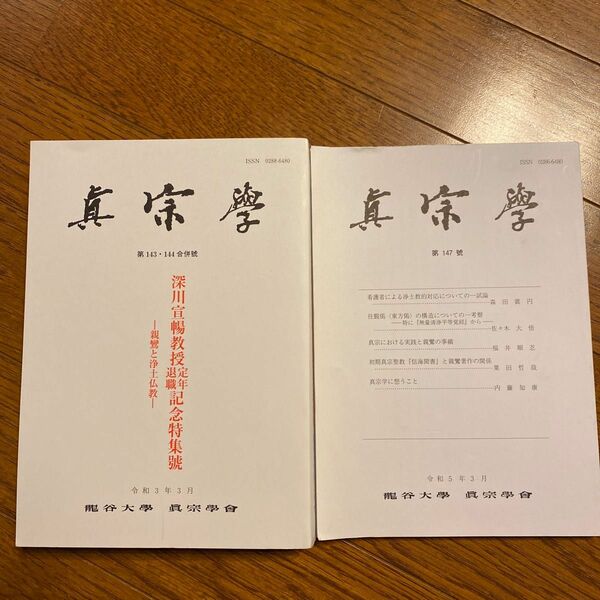 ISSN 0288-6480
眞宗學
第143・144合併號
深川宣暢教授定年退職記念特集號
―親鸞と浄土仏教―
令和3年3月
龍谷大學 眞宗學會
ISSN 0288-6480
眞宗學
第147號
看護者による浄土教的対応についての一試論
森田眞円
往覲偈(東方偈)の構造についての一考察
――特に『無量清浄平等覚経』から――
佐々木大悟
真宗における実践と親鸞の事績
福井順忍
初期真宗聖教『信海聞書』と親鸞著作の関係
栗田哲哉
真宗学に想うこと
内藤知康
令和5年3月
龍谷大學 眞宗學會